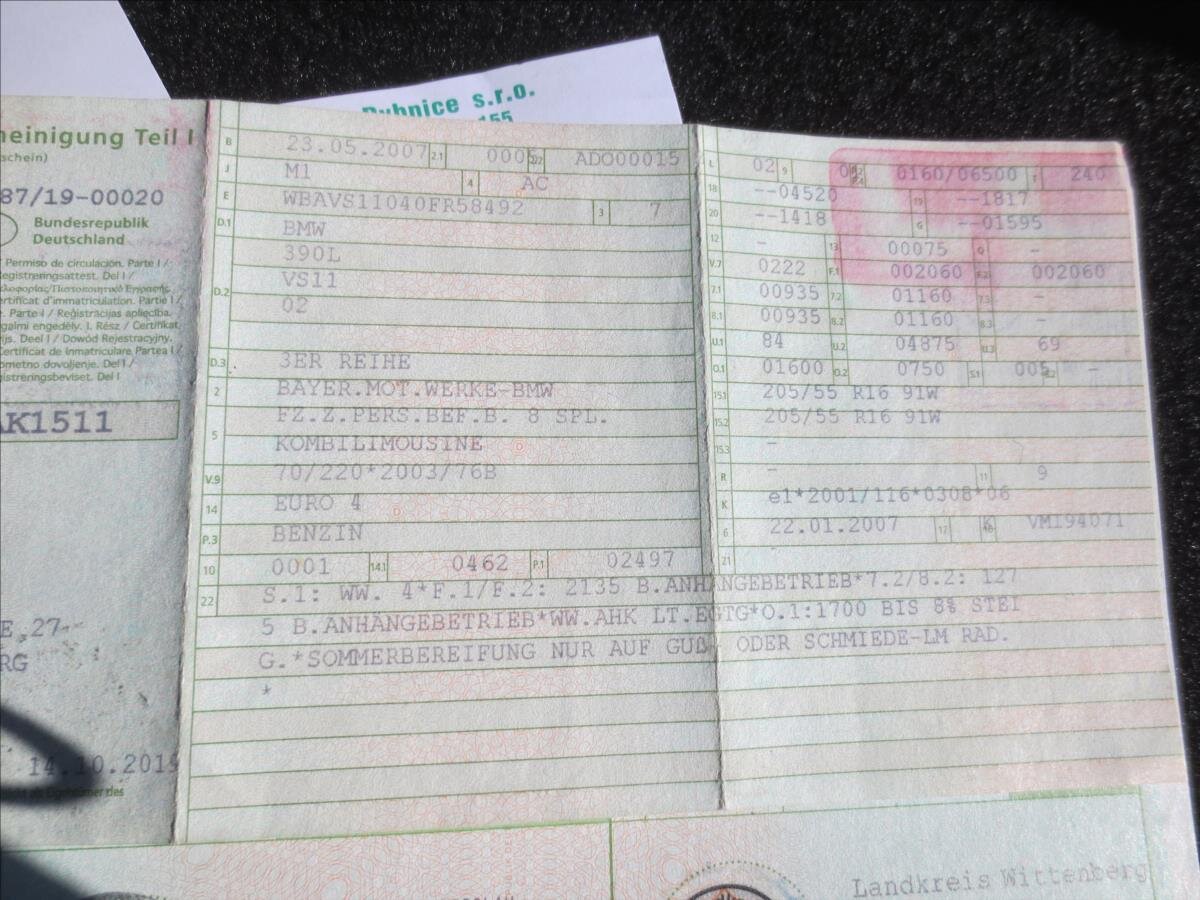 Dubnice s.r.o.
155
heinigung Teil I
schein)
87/19-00020
Bundesrepublik
Deutschland
Permiso de circulación. Parte I /
Registreringsattest. Del I /
ertificat d'immatriculation. Partie I /
. Parte I / Reģistrācijas apliecība.
galmi engedély. I. Rész / Certifikat
ijs. Deel I / Dowód Rejestracyjny.
Certificat de înmatriculare. Partea I /
ometno dovoljenje. Del I /
istreringsbeviset. Del I
AK1511
E 27
RG
14.10.2019
B 23.05.2007 2.1 0005 2.2 ADO00015
J M1 4 AC
E WBAVS11040FR58492 3 7
D.1 BMW
390L
D.2 VS11
02
D.3 3ER REIHE
2 BAYER.MOT.WERKE-BMW
5 FZ.Z.PERS.BEF.B. 8 SPL.
KOMBILIMOUSINE
V.9 70/220*2003/76B
14 EURO 4
P.3 BENZIN
10 0001 14.1 0462 P.1 02497
L 02 9 0160/06500 T 240
18 --04520 19 --1817
20 --1418 G --01595
12 - 13 00075 Q -
V.7 0222 F.1 002060 F.2 002060
7.1 00935 7.2 01160 7.3 -
8.1 00935 8.2 01160 8.3 -
U.1 84 U.2 04875 U.3 69
O.1 01600 O.2 0750 S.1 005 S.2 -
15.1 205/55 R16 91W
15.2 205/55 R16 91W
15.3 -
R - 11 9
K e1*2001/116*0308*06
6 22.01.2007 17 K 16 VM194071
21 -
22 S.1: WW. 4*F.1/F.2: 2135 B.ANHÄNGEBETRIEB*7.2/8.2: 127
5 B.ANHÄNGEBETRIEB*WW.AHK LT.EGTG*O.1:1700 BIS 8% STEI
G.*SOMMERBEREIFUNG NUR AUF GUß- ODER SCHMIEDE-LM RAD.
*
Landkreis Wittenberg